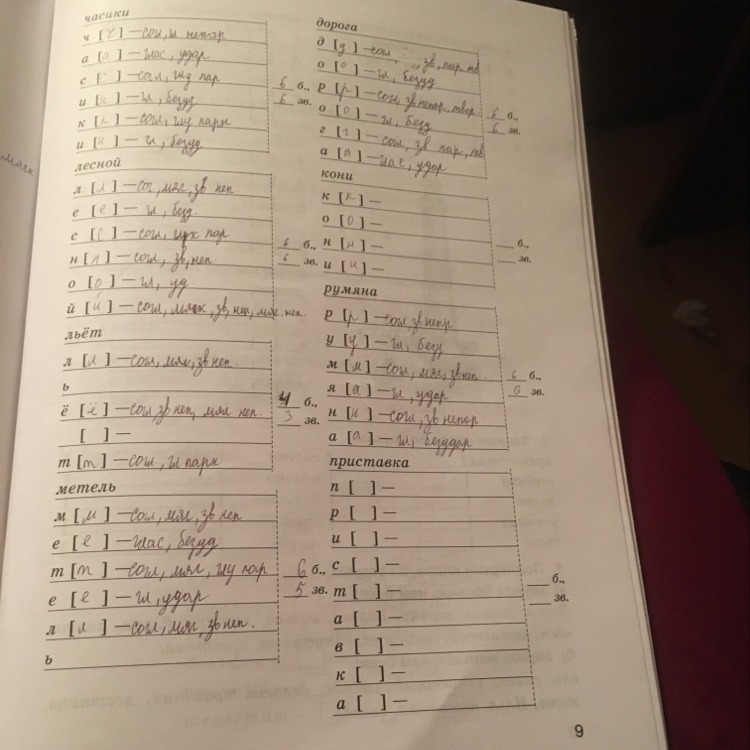 часики
ч [ч] — сог, гл непар
а [а] — глас, удар
с [с] — согл, глу пар
и [и] — гл, безуд
к [к] — согл, глу парн
и [и] — гл, безуд
6 б.,
6 зв.
лесной
л [л] — сог, мяг, зв неп.
е [е] — гл, безд.
с [с] — согл, глух пар
н [н] — согл, зв, неп.
о [о] — гл, уд
й [й] — согл, мягк, зв, неп, мяг. неп.
6 б.,
6 зв.
льёт
л [л] — согл, мяг, зв неп.
ь
ё [ё] — согл, зв неп, мяг неп.
[ ] —
т [т] — согл, гл парн
4 б.,
3 зв.
метель
м [м] — согл, мяг, зв неп
е [е] — глас, безуд
т [т] — согл, мяг, глу пар
е [е] — гл, удар
л [л] — согл, мяг, зв неп.
ь
6 б.,
5 зв.
дорога
д [д] — согл, зв, пар, тв
о [о] — гл, безуд
р [р] — согл, зв непар, твер.
о [о] — гл, безд
г [г] — согл, зв пар, тв
а [а] — глас, удар
6 б.,
6 зв.
кони
к [к] —
о [о] —
н [н] —
и [и] —
б.,
зв.
румяна
р [р] — согл, зв непр
у [у] — гл, безд
м [м] — согл, мяг, зв неп.
я [а] — гл, удар
н [н] — согл, зв непар
а [а] — гл, безудар
6 б.,
6 зв.
приставка
п [ ] —
р [ ] —
и [ ] —
с [ ] —
т [ ] —
а [ ] —
в [ ] —
к [ ] —
а [ ] —
б.,
зв.
9